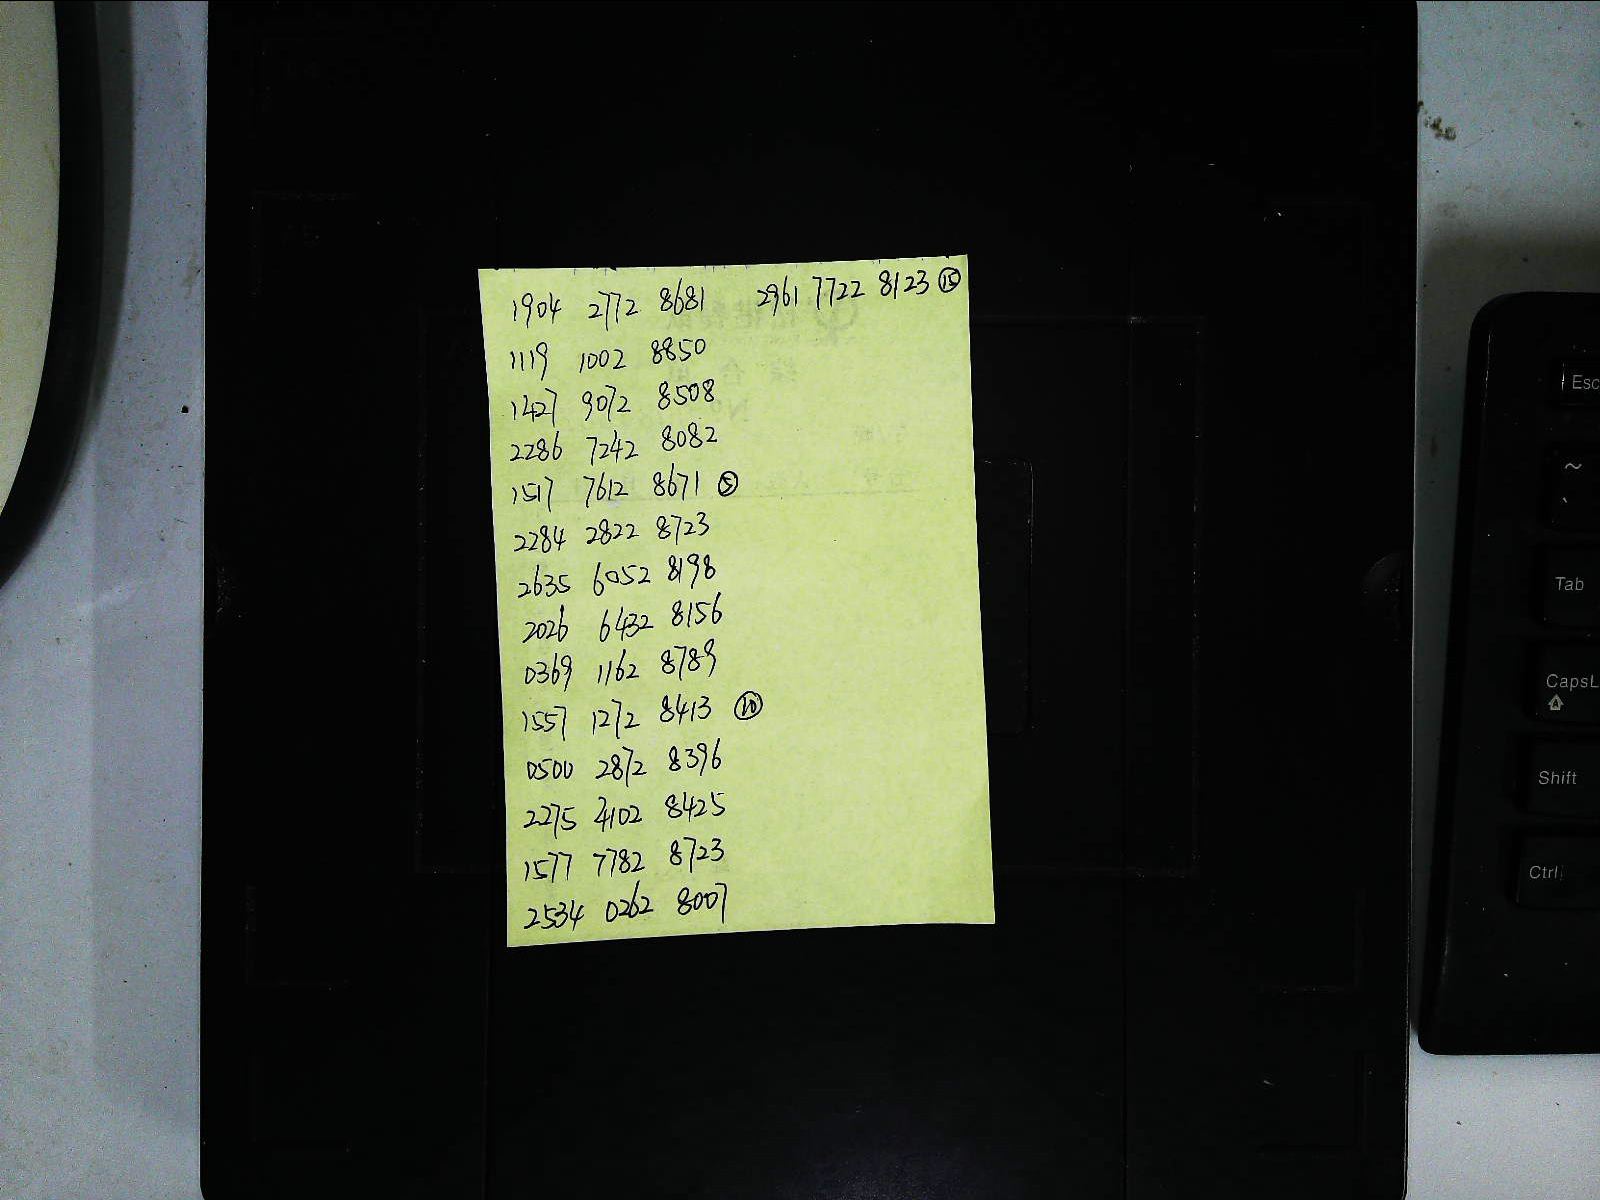 1904 2772 8681 2961 7722 8123 ⑮
1119 1002 8850
1427 9072 8508
2286 7242 8082
1517 7612 8671 ⑤
2284 2822 8723
2635 6052 8198
2026 6432 8156
0369 1162 8789
1557 1272 8413 ⑩
0500 2872 8396
2275 4102 8425
1577 7782 8723
2534 0262 8007
Esc
~
`
Tab
CapsL
Shift
Ctrl